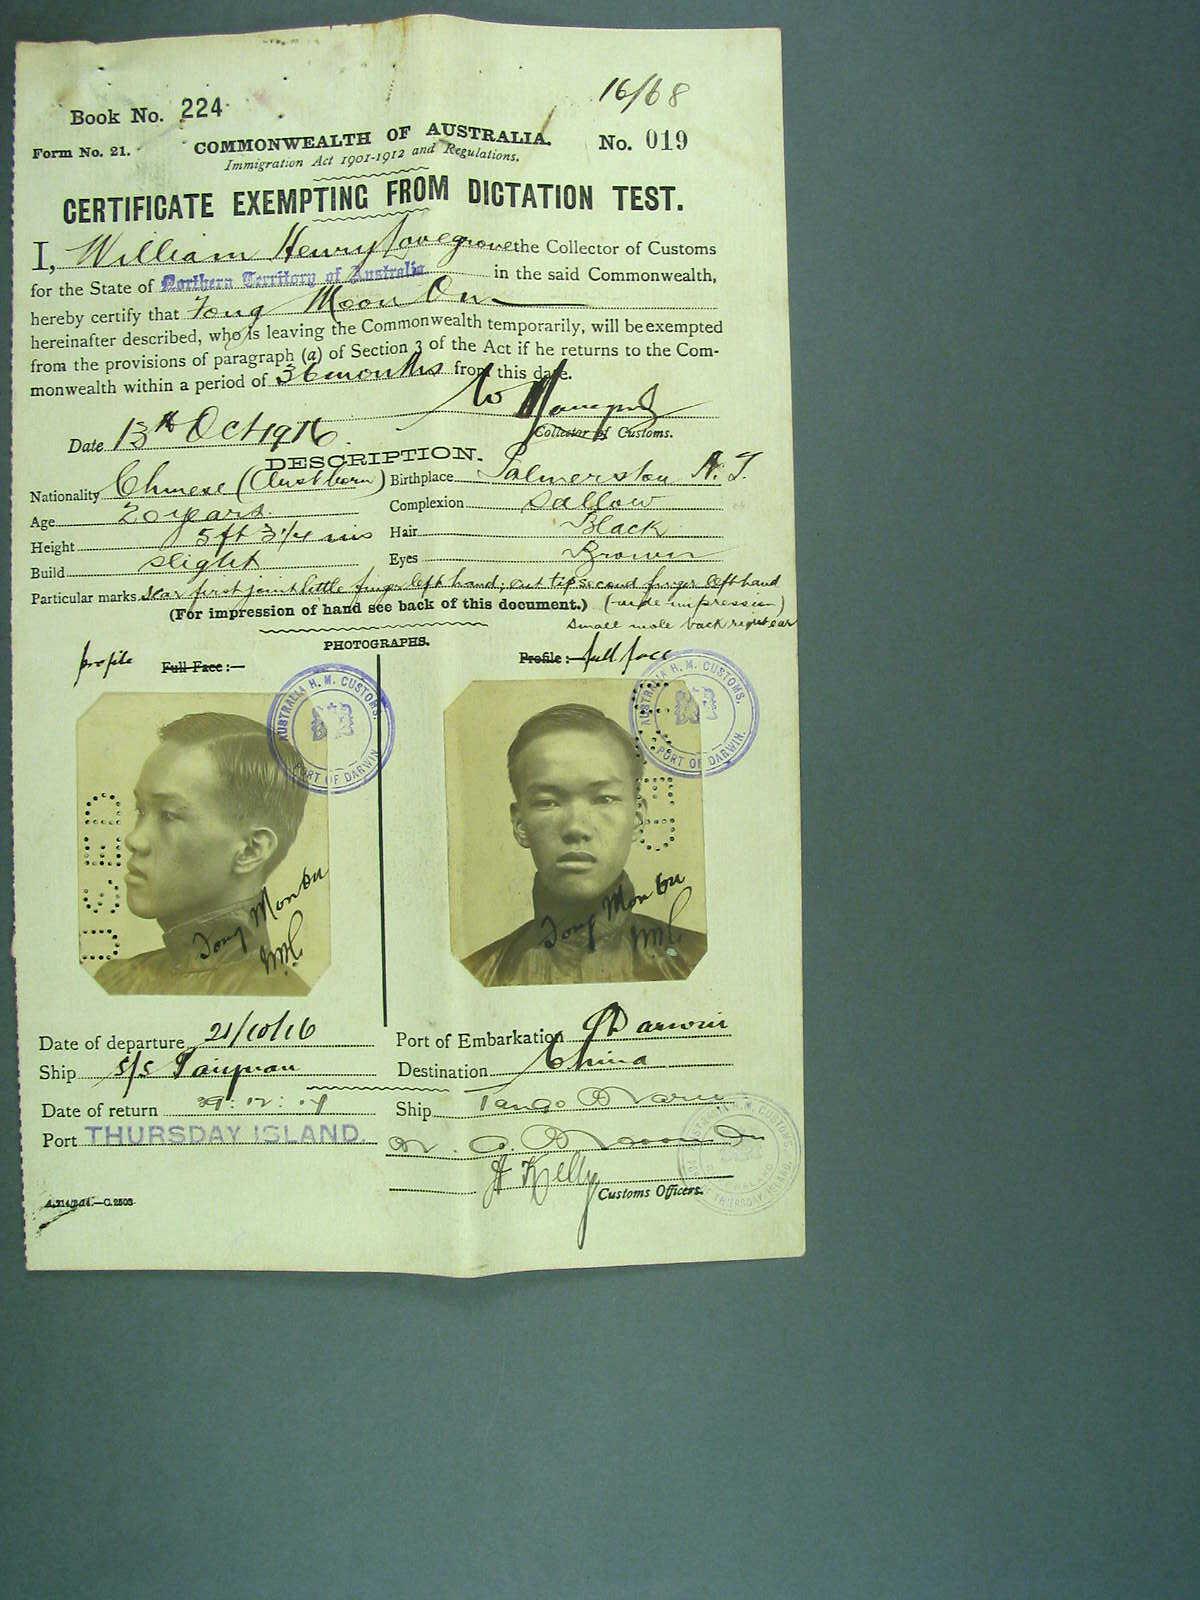 16/68
Book No. 224
Form No. 21.
COMMONWEALTH OF AUSTRALIA.
No. 019
Immigration Act 1901-1912 and Regulations.
CERTIFICATE EXEMPTING FROM DICTATION TEST.
I, William Henry Lovegrove the Collector of Customs
for the State of Northern Territory of Australia in the said Commonwealth,
hereby certify that Fong Moon On
hereinafter described, who is leaving the Commonwealth temporarily, will be exempted
from the provisions of paragraph (a) of Section 3 of the Act if he returns to the Com-
monwealth within a period of 36 months from this date.
Collector of Customs.
Date 13th Oct 1916.
DESCRIPTION.
Nationality Chinese (Aust born) Birthplace Palmerston N. T.
Age 20 years Complexion Sallow
Height 5 ft 3 1/4 ins Hair Black
Build slight Eyes Brown
Particular marks scar first joint little finger left hand; cut tip second finger left hand
(For impression of hand see back of this document.) (vide impression)
small mole back right ear
PHOTOGRAPHS.
profile Full Face:—
Profile:— full face
AUSTRALIA H. M. CUSTOMS. PORT OF DARWIN
AUSTRALIA H. M. CUSTOMS. PORT OF DARWIN.
Date of departure 21/10/16 Port of Embarkation Darwin
Ship S/S Taiyuan Destination China
Date of return Ship Tango Maru
Port THURSDAY ISLAND
H Kelly
Customs Officers.